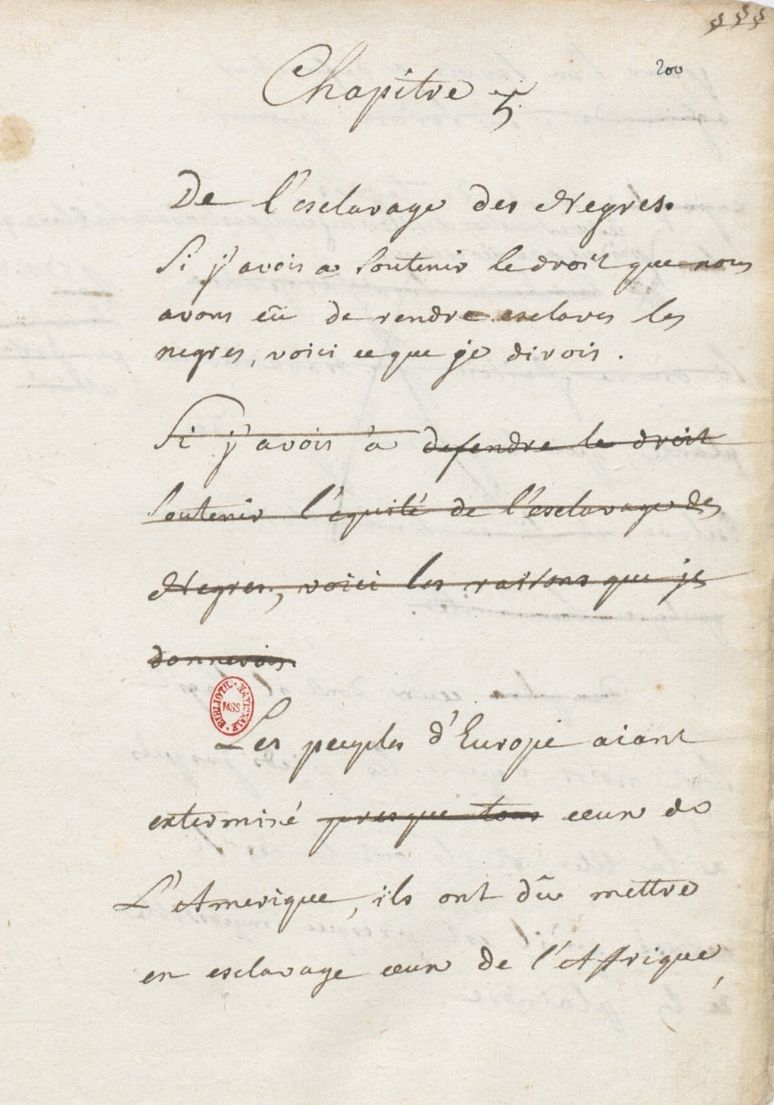 200
Chapitre 5
De l'esclavage des Negres.
Si j'avois a soutenir le droit que nous
avons eû de rendre esclaves les
negres, voici ce que je dirois.
Si j'avois à defendre le droit
soutenir l'équité de l'esclavage des
Negres, voici les raisons que je
donnerois
BIBLIOTH. NATIONALE MSS
Les peuples d'Europe aiant
exterminé presque tous ceux de
L'Amerique, ils ont dû mettre
en esclavage ceux de l'Affrique,